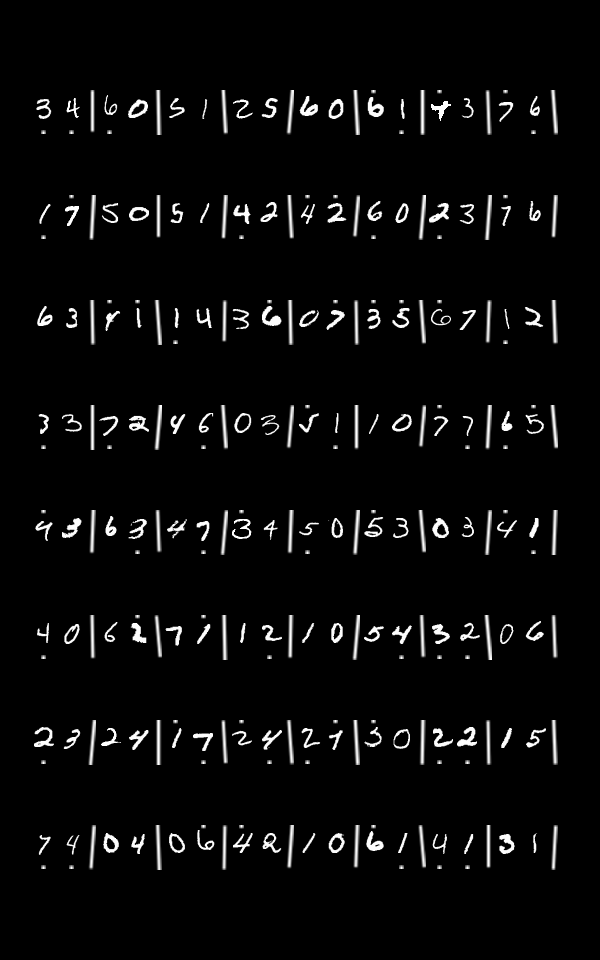 3̣ 4̣ | 6̣ 0 | 5 1 | 2 5 | 6 0 | 6̇ 1̣ | 4̇ 3 | 7̇ 6̣ |
1̣ 7̇ | 5 0 | 5 1 | 4̣ 2 | 4̇ 2̇ | 6̣ 0 | 2̣ 3 | 7̇ 6 |
6 3 | 4̇ 1̇ | 1̣ 4 | 3 6̇ | 0 7̇ | 3̇ 5̇ | 6̇ 7 | 1̣ 2 |
3̣ 3 | 7̣ 2 | 4 6̣ | 0 3 | 5̇ 1̣ | 1 0 | 7̇ 7̣ | 6̣ 5̇ |
4̇ 3 | 6 3̣ | 4 7̣ | 3̇ 4 | 5̣ 0 | 5̇ 3 | 0 3 | 4̇ 1̣ |
4̣ 0 | 6 2̇ | 7 1̇ | 1 2̣ | 1 0 | 5 4̣ | 3̣ 2̣ | 0 6 |
2̣ 3 | 2 4 | 1̇ 7̣ | 2̇ 4̣ | 2̣ 7̇ | 3̇ 0 | 2̣ 2̣ | 1 5 |
7̣ 4̣ | 0 4 | 0 6̇ | 4̇ 2 | 1 0 | 6̇ 1̣ | 4 1̣ | 3 1 |